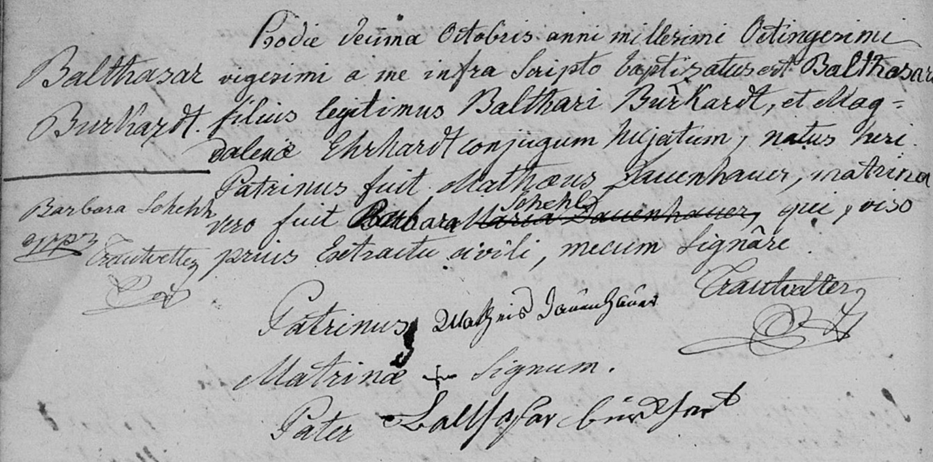 Hodie decima Octobris anni millesimi Octingesimi
Balthasar
Burkardt.
vigesimi a me infra Scripto baptizatus est Balthasar
filius legitimus Balthari Burkardt, et Mag=
dalenæ Ehrhardt conjugum hujatum, natus heri.
Patrinus fuit Mathæus Dauenhauer, matrina
Schehl
vero fuit Barbara Maria Dauenhauer, qui, viso
prius Extractu civili, mecum Signâre.
Barbara Schehl
Trautvetter
Trautvetter
Patrinus Matheis Dauenhauer
Matrinæ + Signum.
Pater Balthasar burkhart